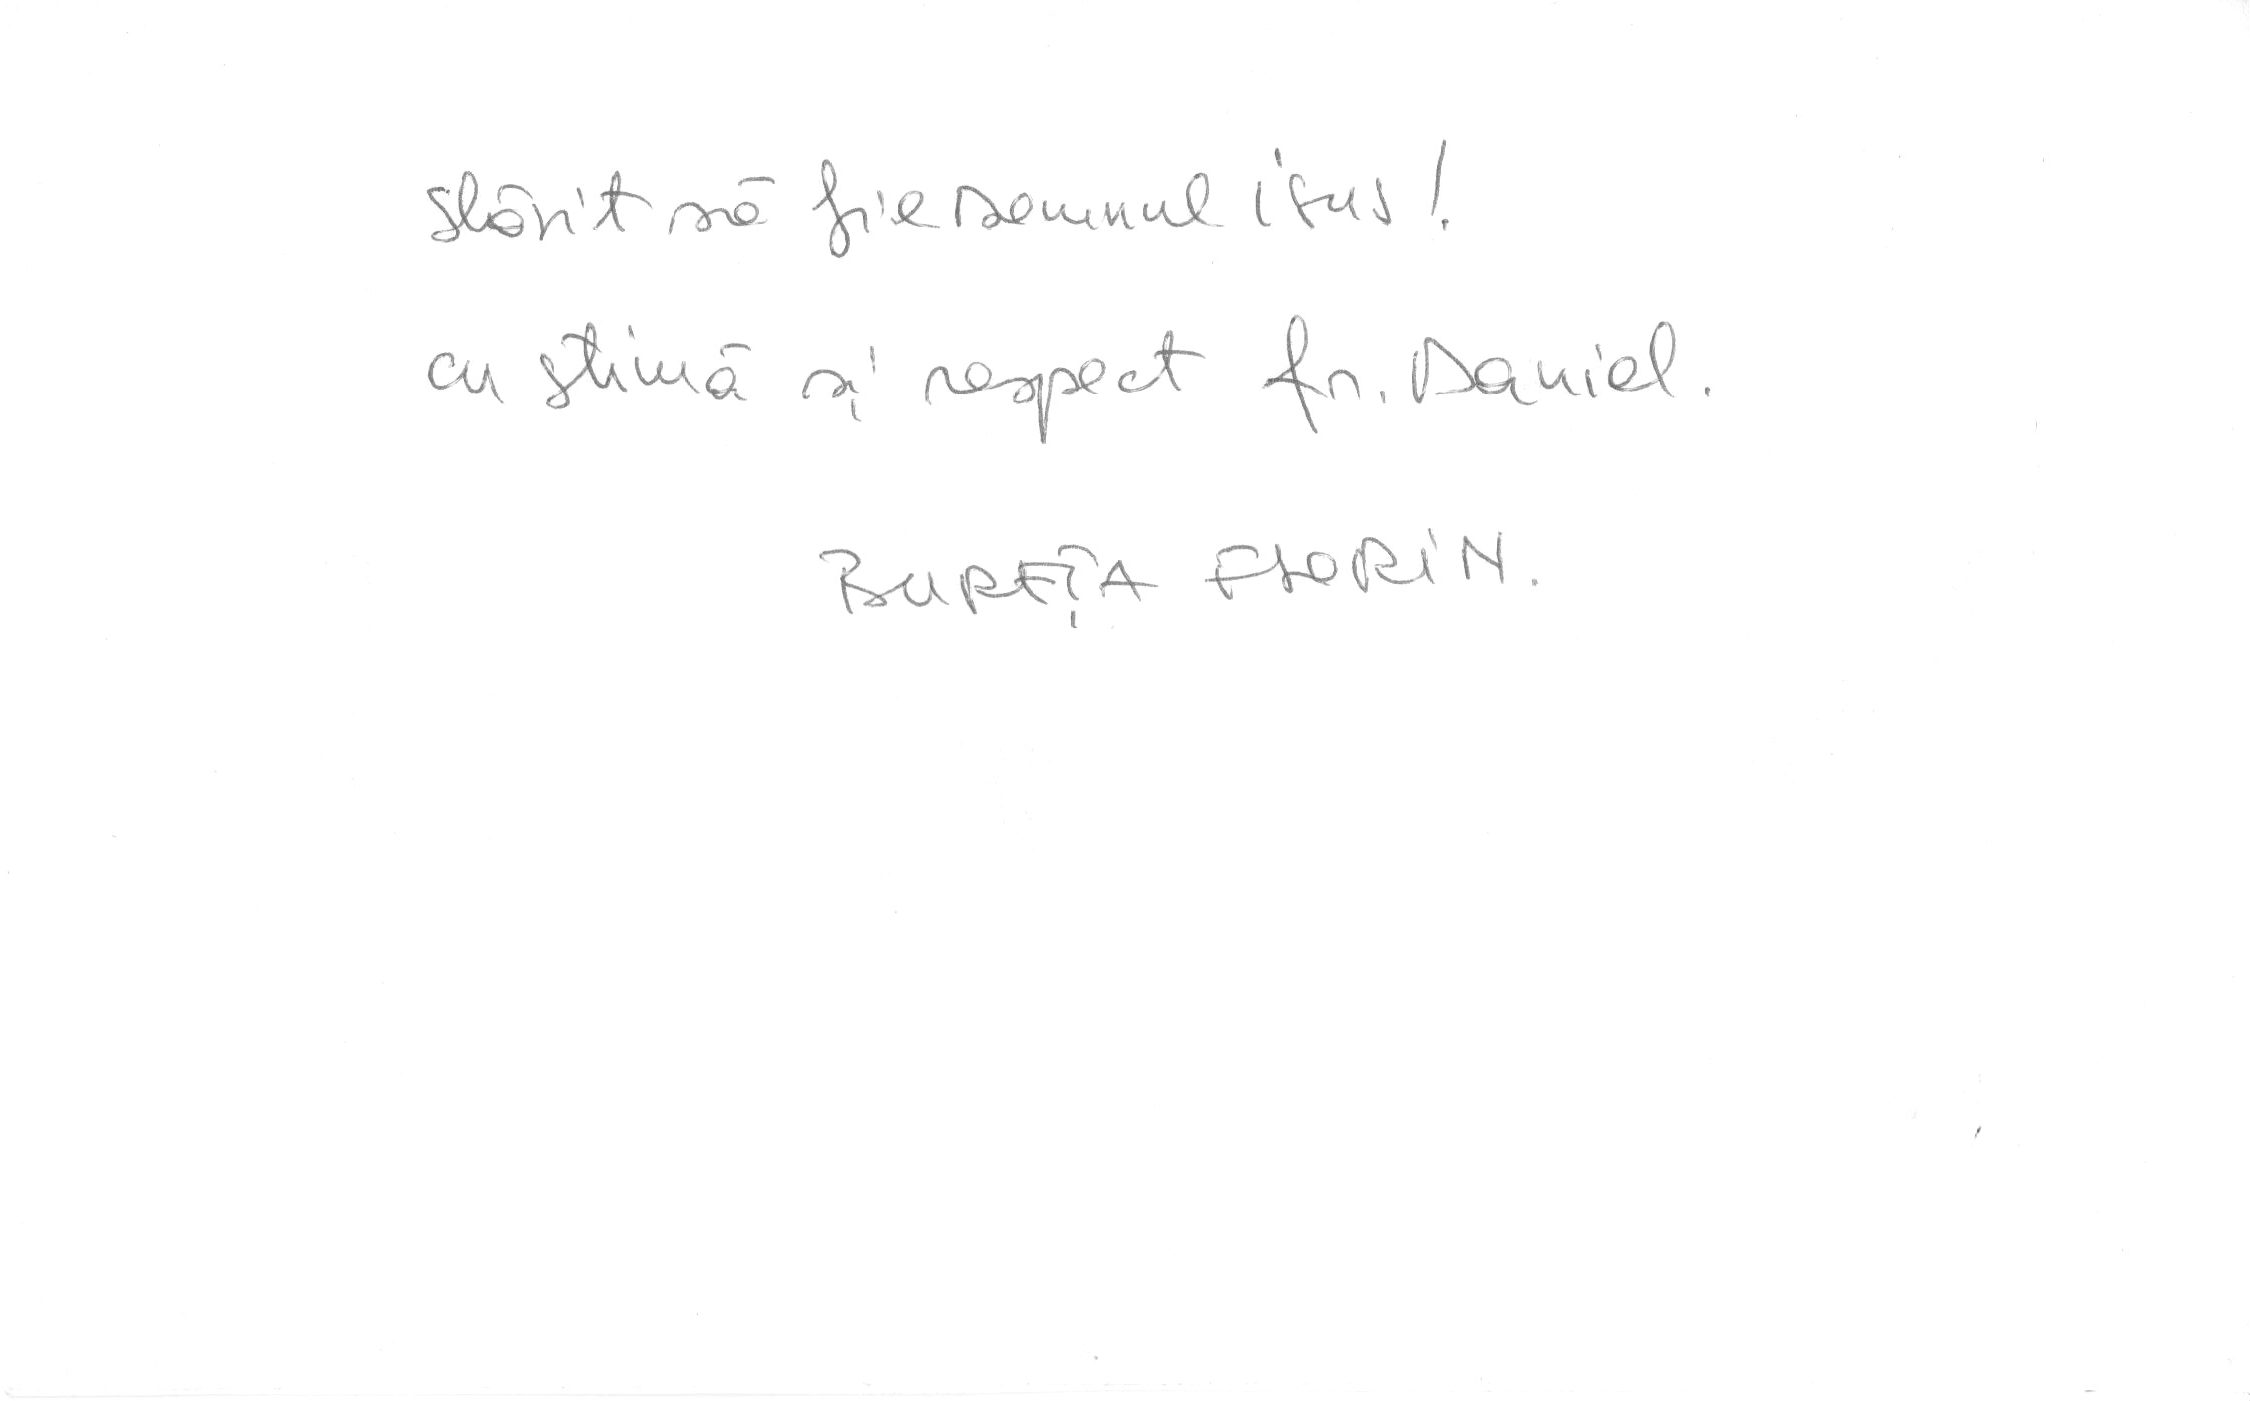 slăvit să fie Domnul isus!
cu stimă și respect fr. Daniel.
BUREȚA FLORIN.